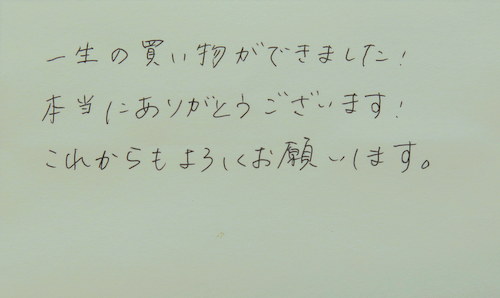 一生の買い物ができました!
本当にありがとうございます!
これからもよろしくお願いします。